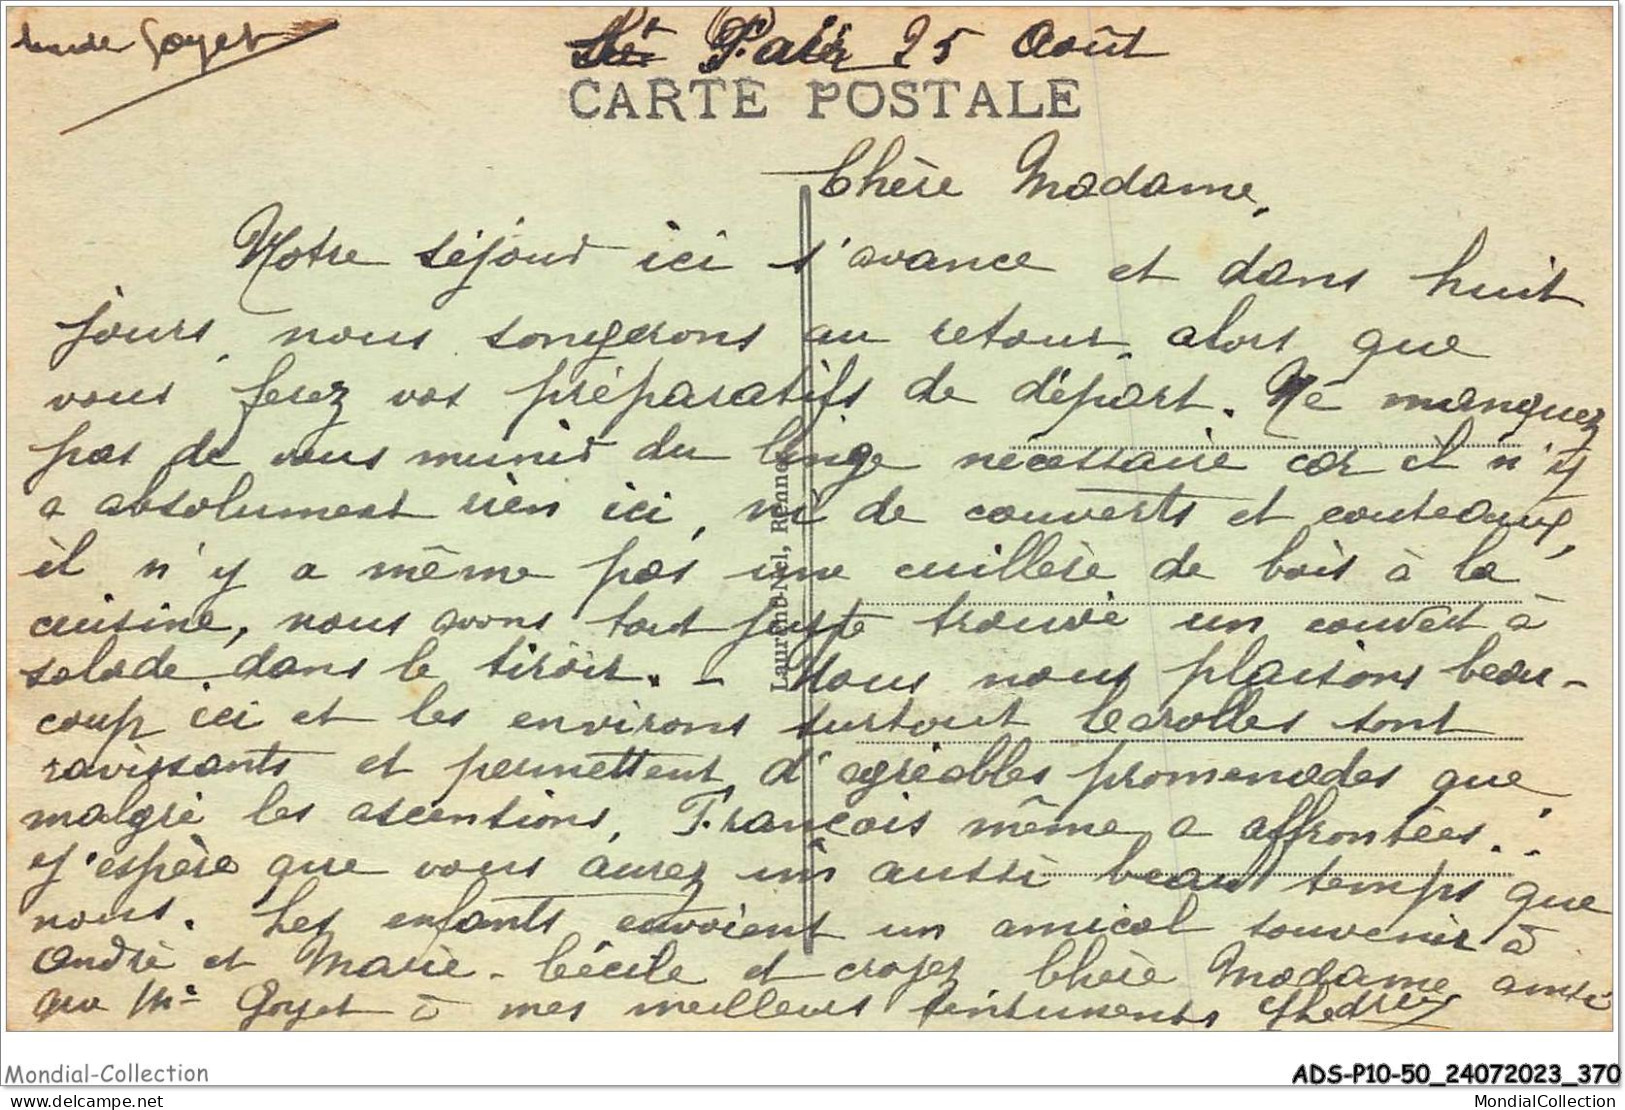 Goyet
St Pair 25 Août
CARTE POSTALE
Chère Madame,
Notre séjour ici s'avance et dans huit
jours, nous songerons au retour, alors que
vous ferez vos préparatifs de départ. Ne manquez
pas de vous munir du linge nécessaire car il n'y
a absolument rien ici, ni de couverts et couteaux,
il n'y a même pas une cuillère de bois à la
cuisine, nous avons tout juste trouvé un couvert à
salade dans le tiroir. - Nous nous plaisons beau-
coup ici et les environs surtout Carolles sont
ravissants et permettent d'agréables promenades que,
malgré les ascentions, François même a affrontées..
J'espère que vous aurez un aussi beau temps que
nous. Les enfants envoient un amical souvenir à
André et Marie-Cécile et croyez Chère Madame ainsi
que Mr Goyet à mes meilleurs sentiments
Laurent-Nel, Rennes
Mondial-Collection
ADS-P10-50_24072023_370
delcampe.net
MondialCollection